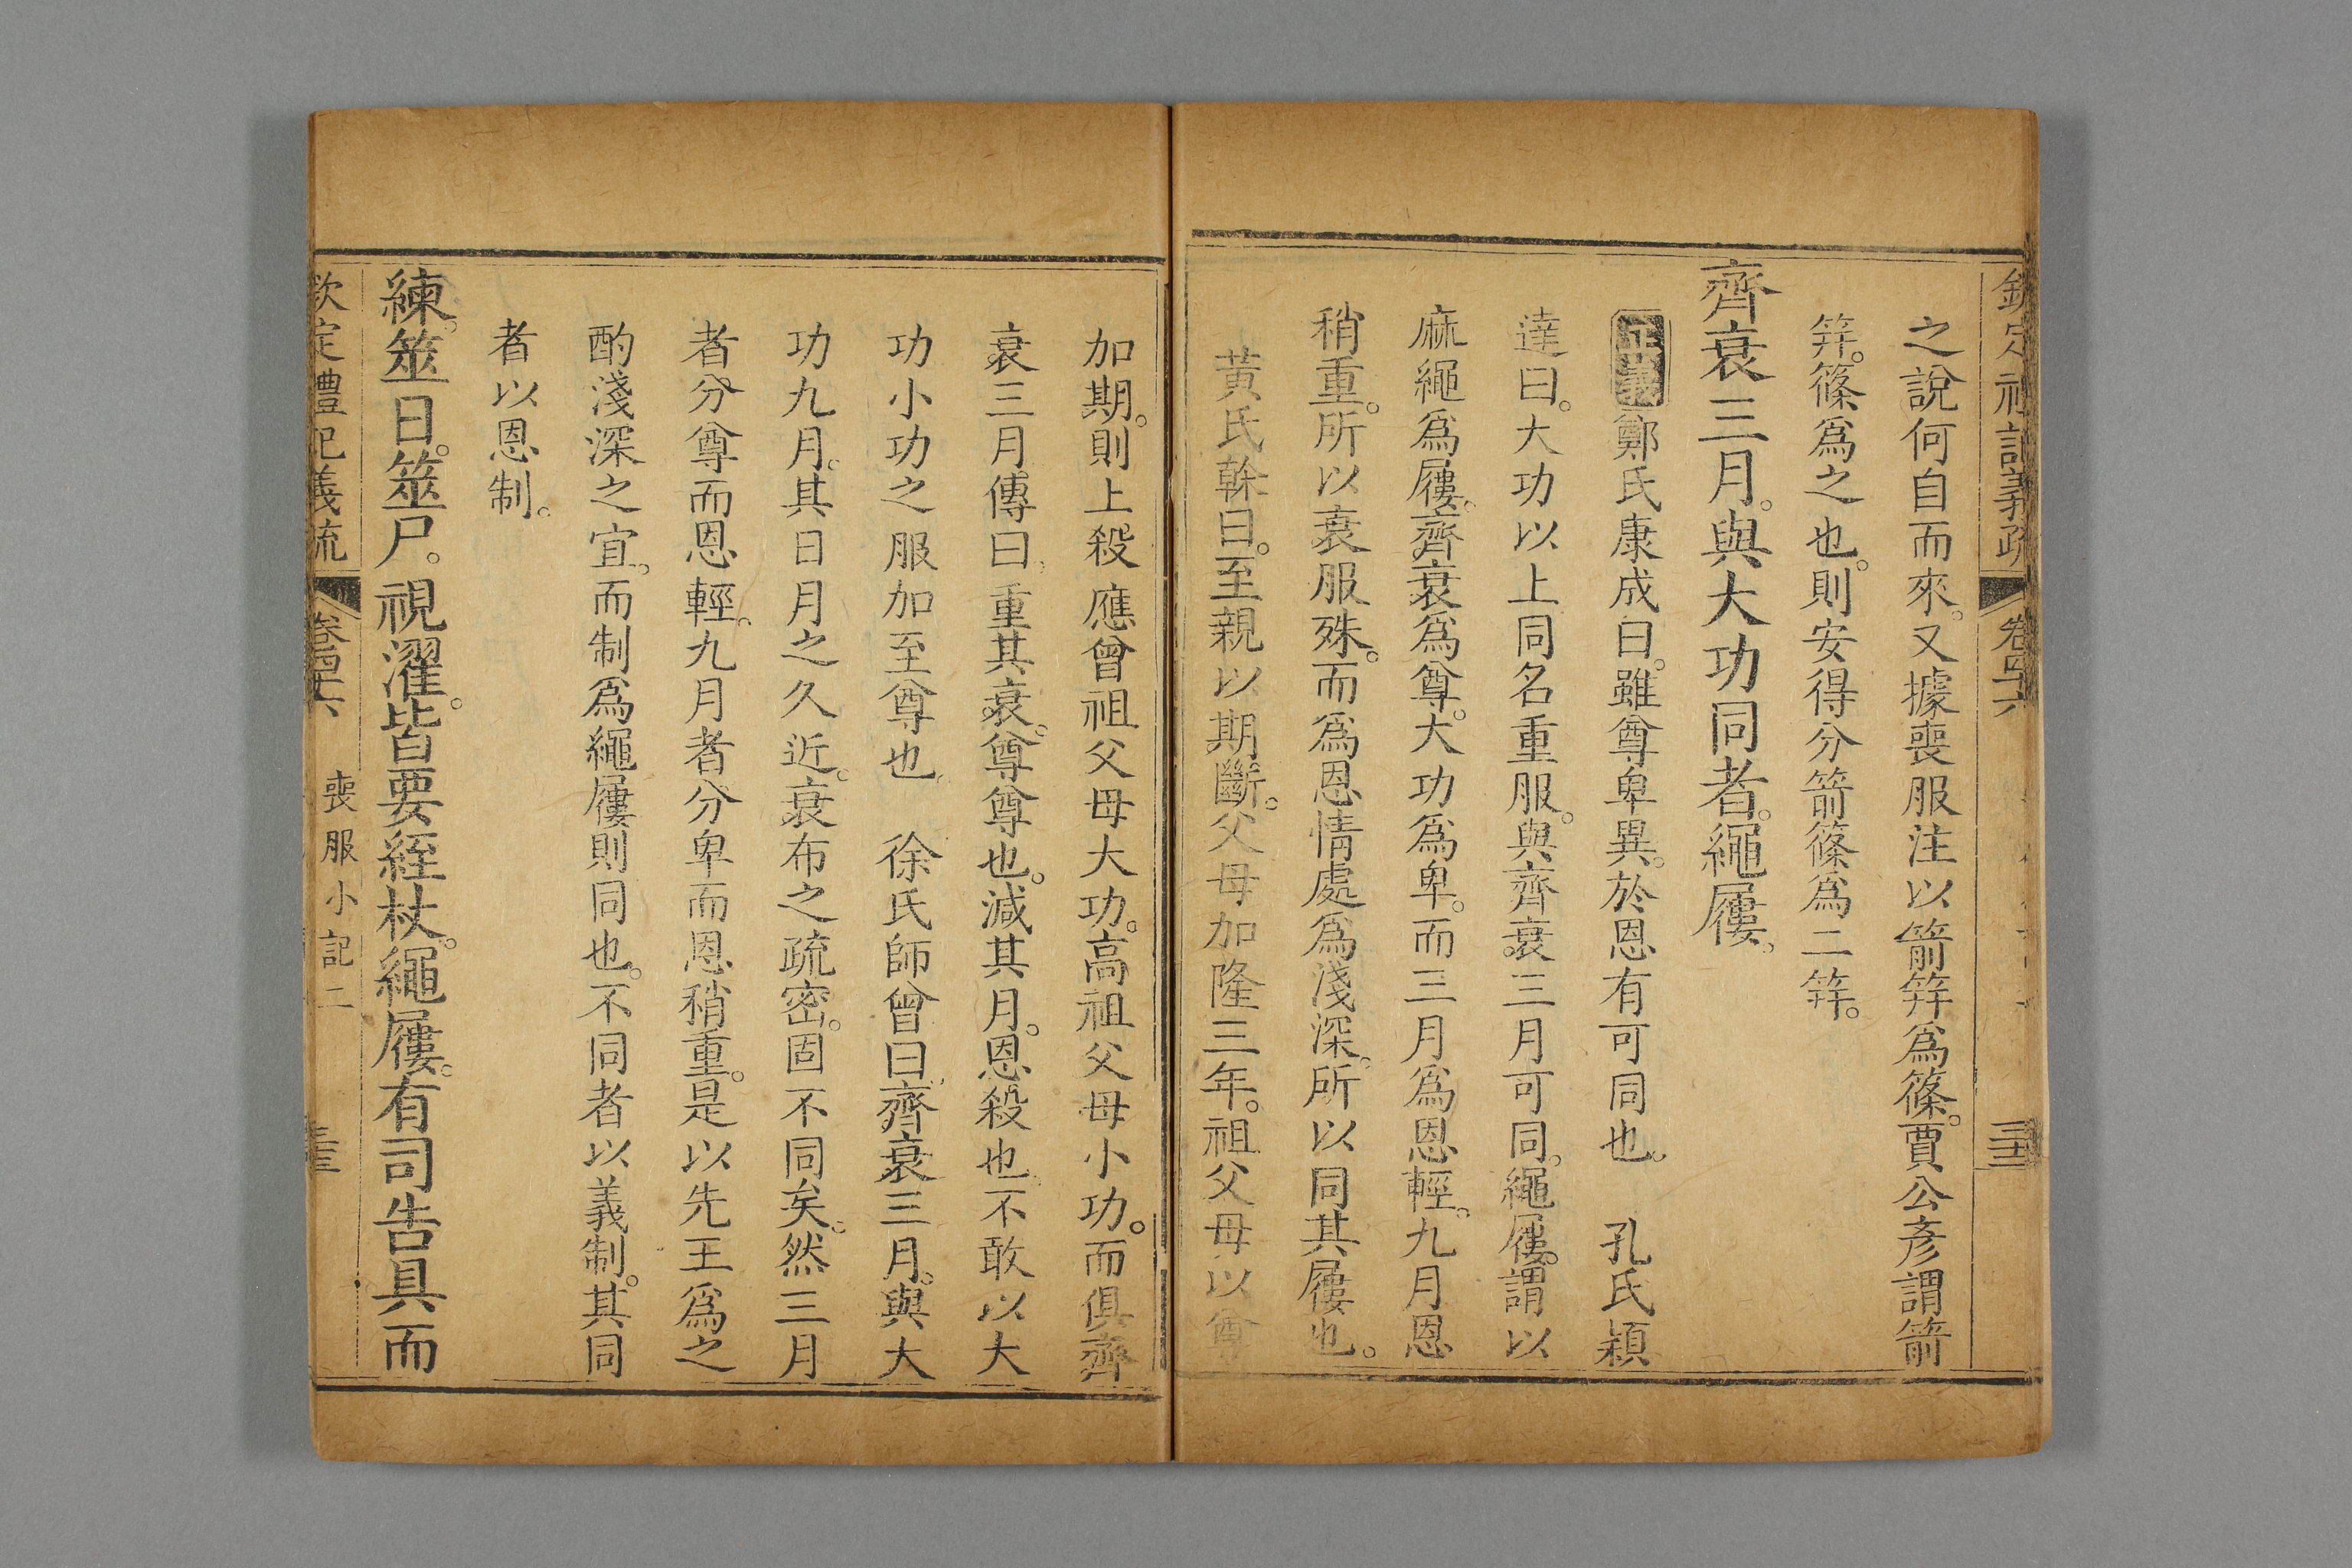 欽定禮記義疏 卷四十六
之說何自而來。又據喪服注以箭筓爲篠。賈公彥謂箭
筓。篠爲之也。則安得分箭篠爲二筓。
齊衰三月。與大功同者。繩屨。
正義鄭氏康成曰。雖尊卑異。於恩有可同也。 孔氏穎
達曰。大功以上同名重服。與齊衰三月可同。繩屨。謂以
麻繩爲屨。齊衰爲尊。大功爲卑。而三月爲恩輕。九月恩
稍重。所以衰服殊。而爲恩情處爲淺深。所以同其屨也。
黃氏榦曰。至親以期斷。父母加隆三年。祖父母以尊
加期。則上殺應曾祖父母大功。高祖父母小功。而俱齊
衰三月傳曰。重其衰。尊尊也。減其月。恩殺也。不敢以大
功小功之服加至尊也 徐氏師曾曰。齊衰三月。與大
功九月。其日月之久近。衰布之疏密。固不同矣。然三月
者分尊而恩輕。九月者分卑而恩稍重。是以先王爲之
酌淺深之宜。而制爲繩屨則同也。不同者以義制。其同
者以恩制。
練。筮日。筮尸。視濯。皆要絰杖。繩屨。有司告具而
欽定禮記義疏 卷四十六 喪服小記二